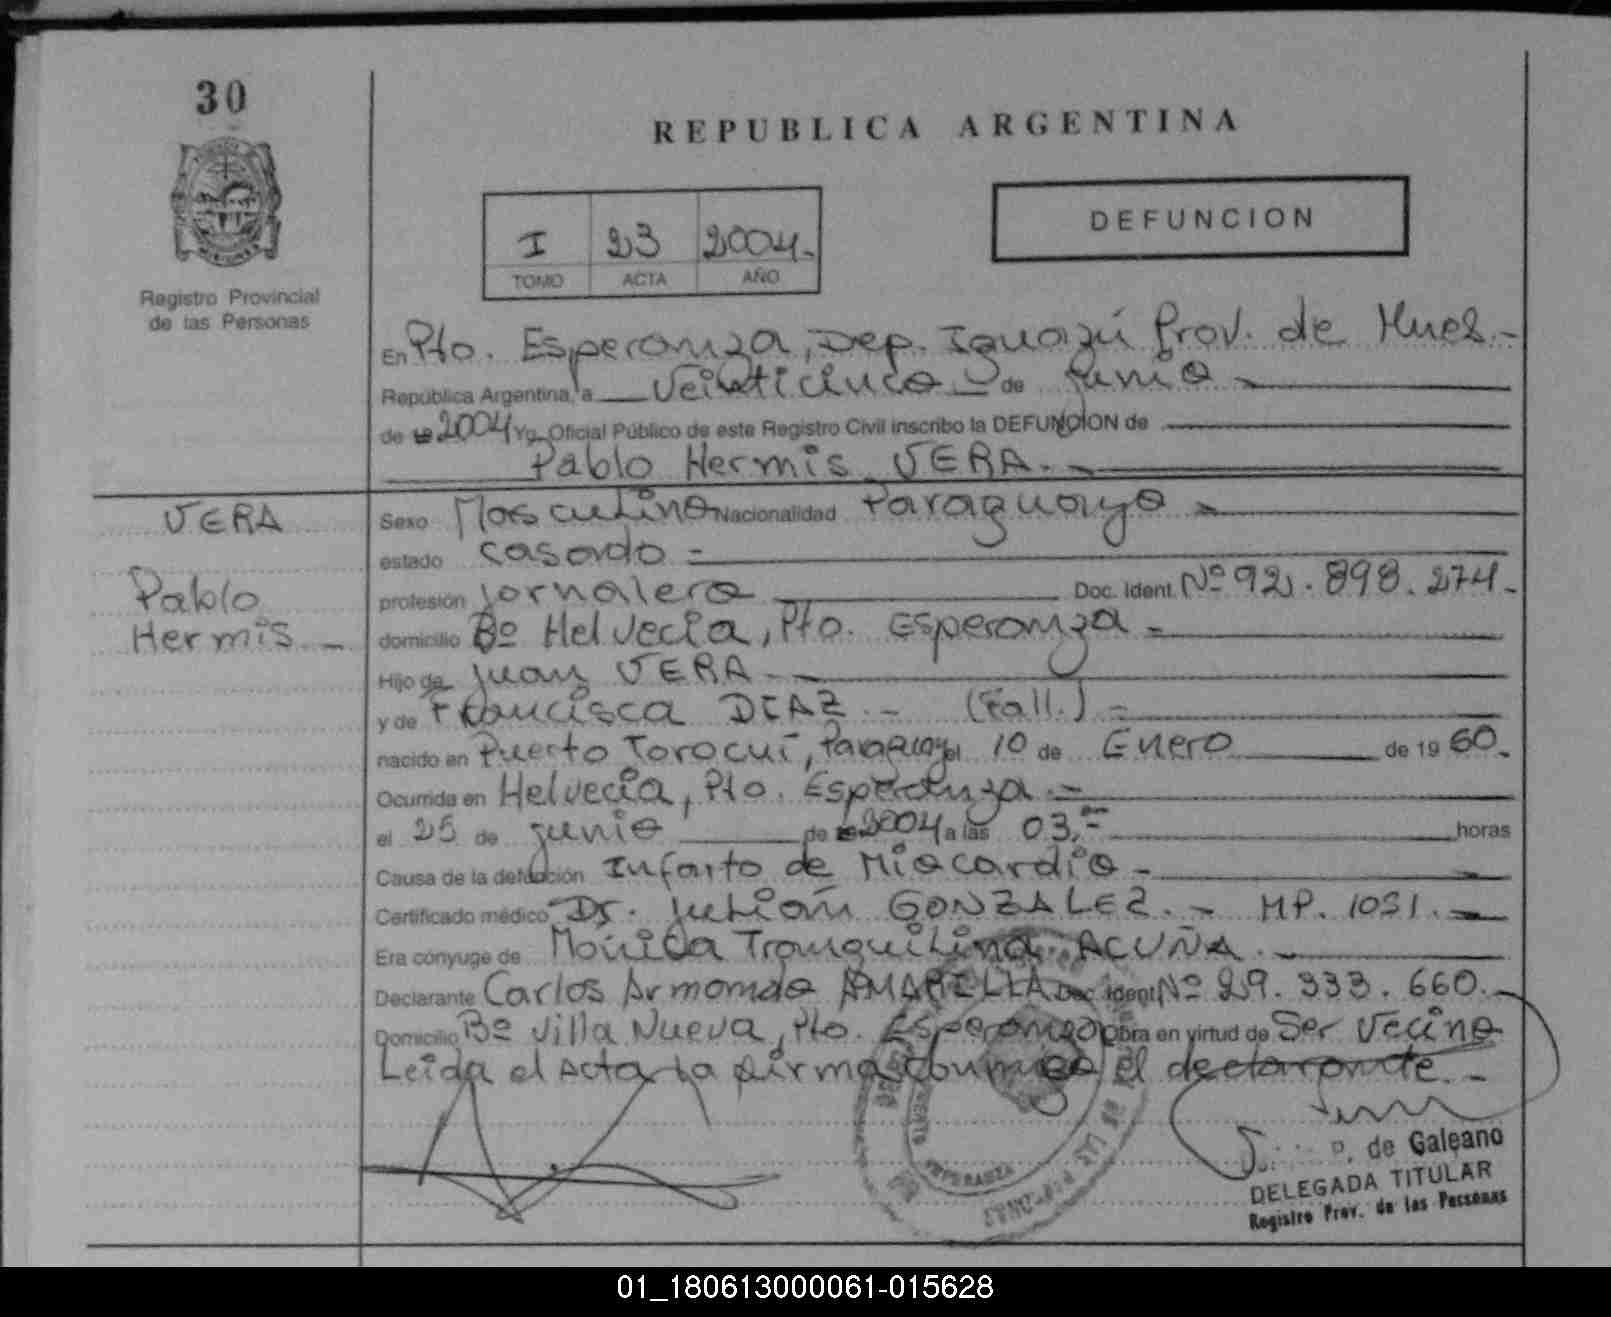 30
REPUBLICA ARGENTINA
DEFUNCION
I 23 2004.-
TOMO ACTA AÑO
Registro Provincial
de las Personas
En Pto. Esperanza, Dep. Iguazú Prov. de Mnes.-
República Argentina, a Veinticinco de Junio
de 19 2004 Yo, Oficial Público de este Registro Civil inscribo la DEFUNCION de
Pablo Hermis VERA.-
VERA
Pablo
Hermis.-
Sexo Masculino Nacionalidad Paraguayo
estado casado.-
profesión Jornalero Doc. Ident. Nº 92.898.274.-
domicilio Bº Helvecia, Pto. Esperanza.-
Hijo de Juan VERA.-
y de Francisca DIAZ.- (Fall.)-
nacido en Puerto Torocuí, Paraguay el 10 de Enero de 19 60.
Ocurrida en Helvecia, Pto. Esperanza.-
el 25 de junio de 19 2004 a las 03,= horas
Causa de la defunción Infarto de Miocardio.-
Certificado médico Dr. Julián GONZALEZ.- MP. 1031.-
Era cónyuge de Mónica Tranquilina ACUÑA.-
Declarante Carlos Armando AMARILLA Doc. Ident. Nº 29.333.660.-
Domicilio Bº Villa Nueva, Pto. Esperanza Obra en virtud de Ser Vecino
Leída el Acta la firma conmigo el declarante.-
P. de Galeano
DELEGADA TITULAR
Registro Prov. de las Personas
01_180613000061-015628